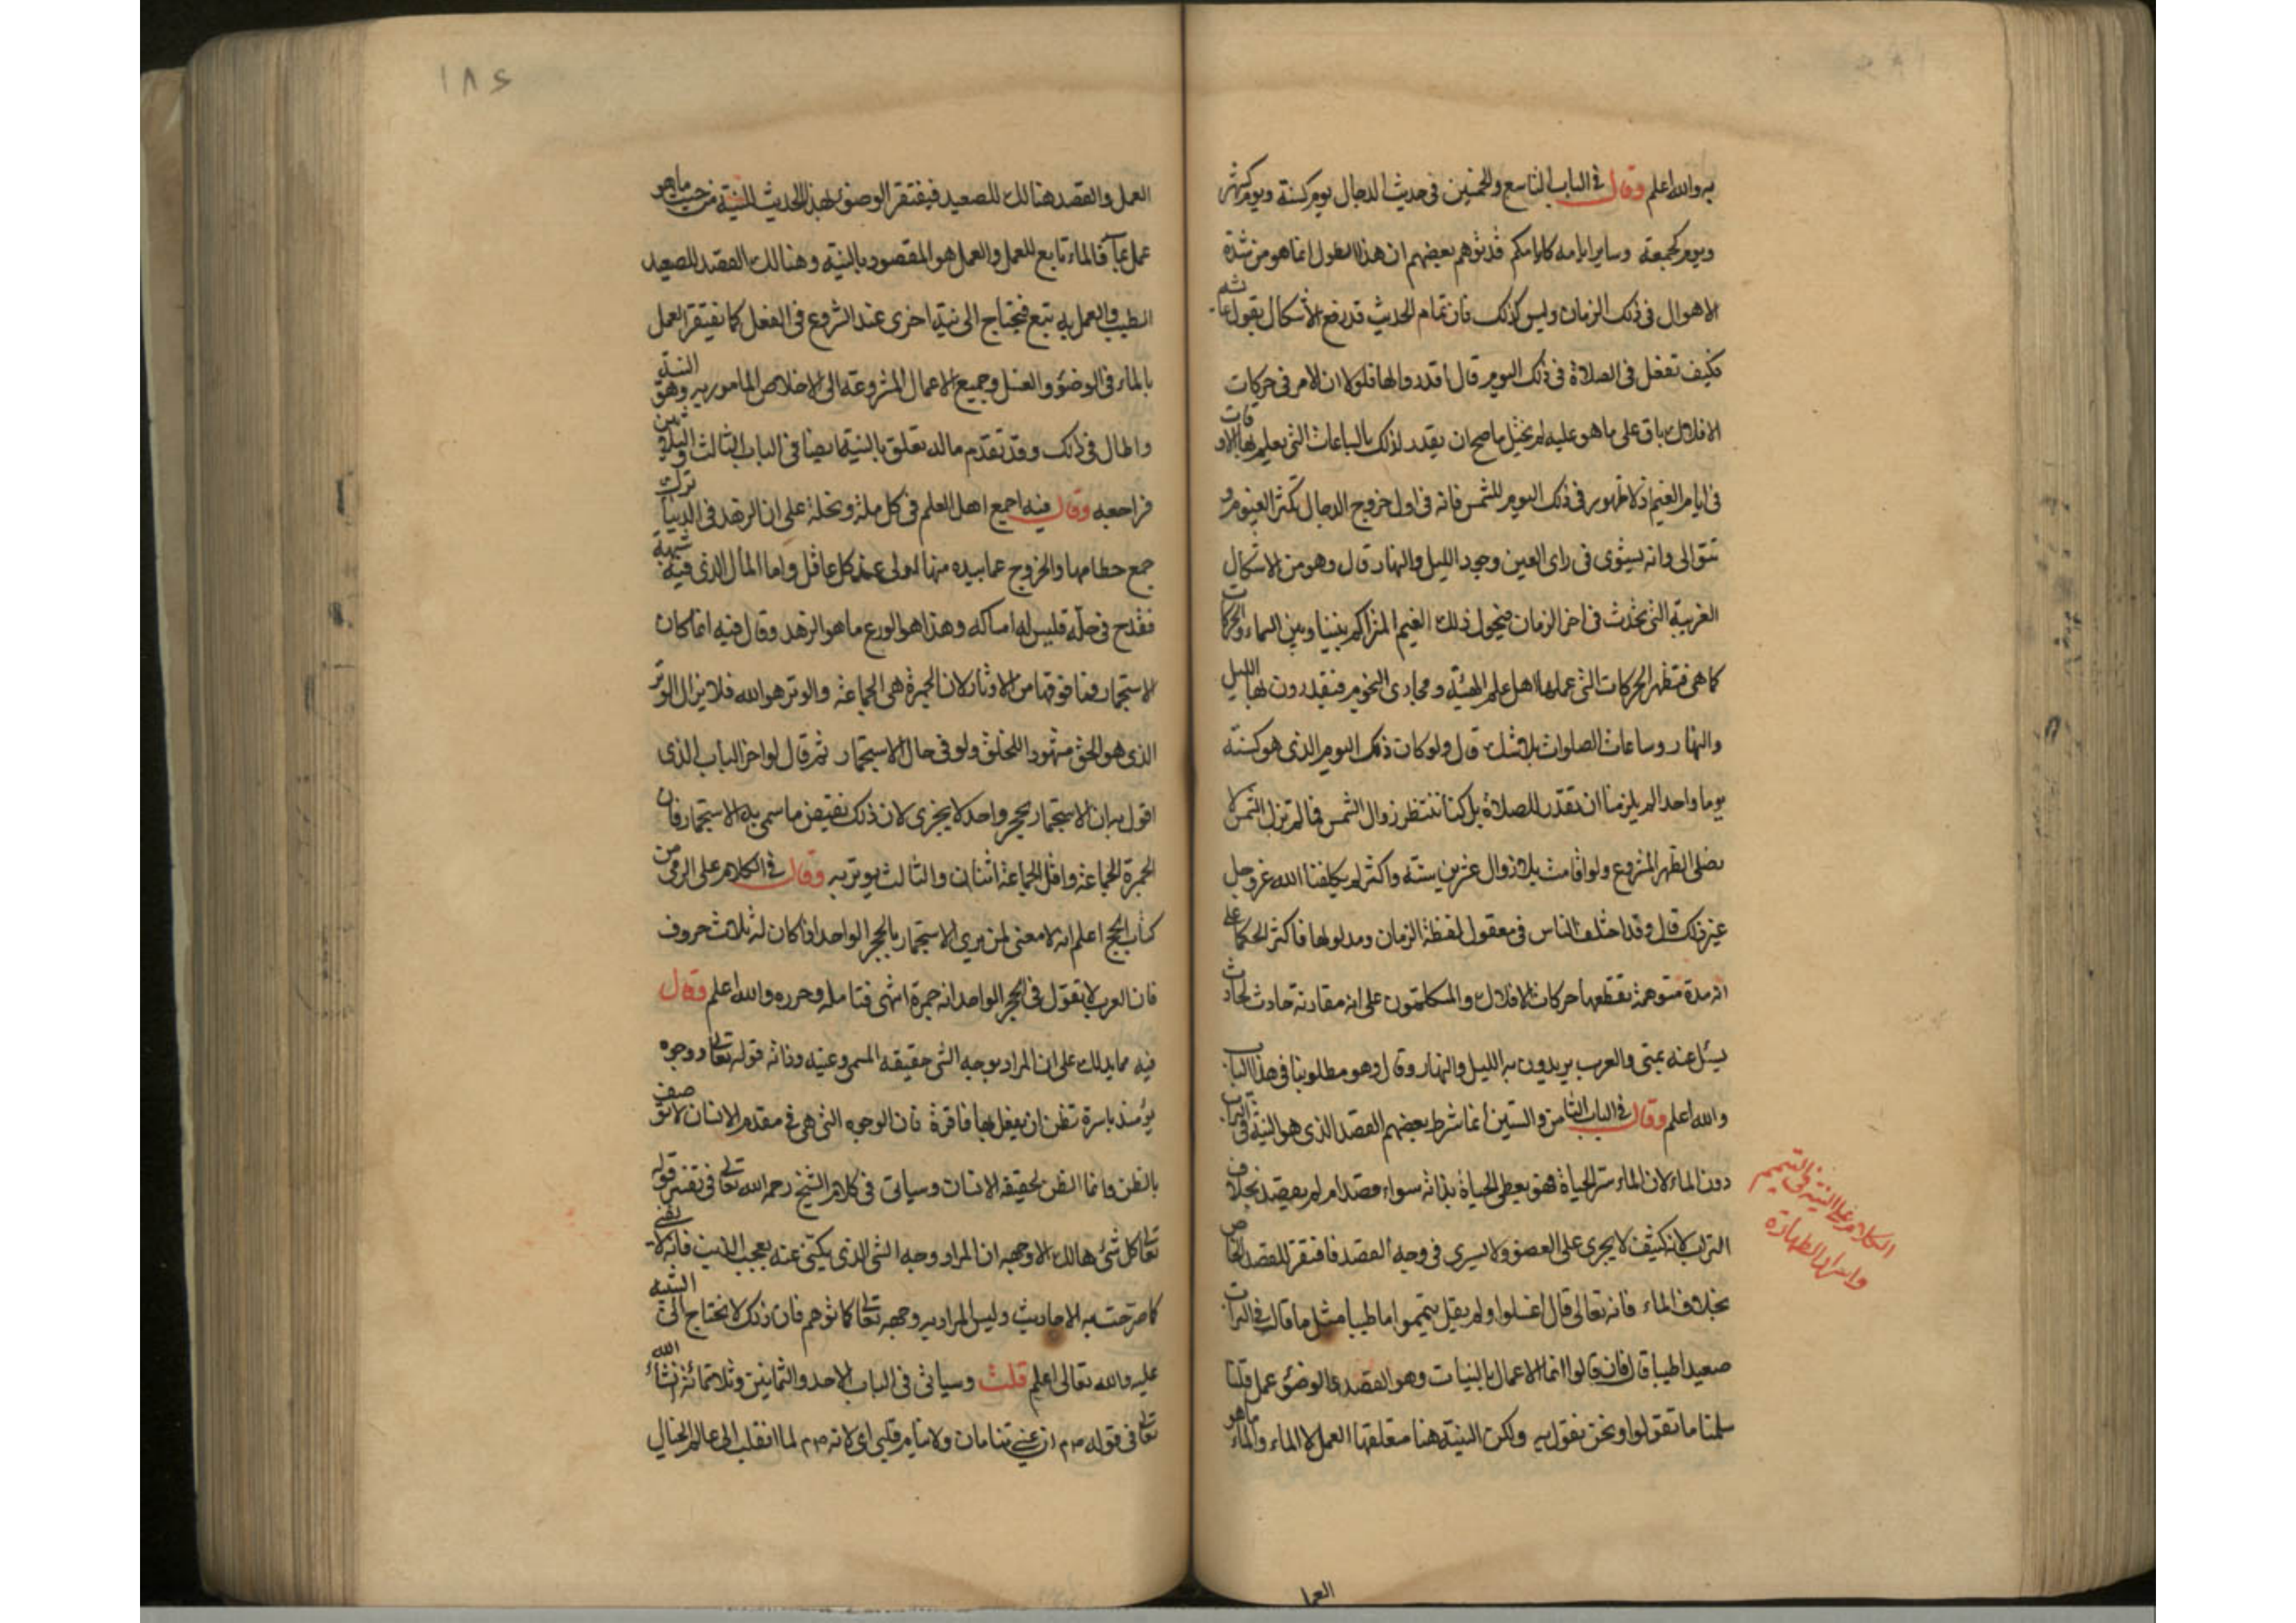 به والله اعلم وقال في الباب التاسع والخمسين في حديث الدجال يوم كسنة ويوم كشهر
ويوم كجمعة وساير ايامه كايامكم قد توهم بعضهم ان هذا الطول انما هو من شدة
الاهوال في ذلك الزمان وليس كذلك فان تمام الحديث قد رفع الاشكال بقول عائشه
فكيف تفعل في الصلاة في ذلك اليوم قال اقدروا لها فلولا ان الامر في حركات
الافلاك باق على ما هو عليه لم يختل ما صح ان يقدر لذلك بالساعات التي يعلم بها الاوقات
في ايام الغيم اذ لا ظهور في ذلك اليوم للشمس فانه في اول خروج الدجال تكثر الغيوم و
تتوالى وانه يستوى في راى العين وجود الليل والنهار قال وهو من الاشكال
الغريبة التي تحدث في اخر الزمان فيحول ذلك الغيم المتراكم بيننا وبين السماء والحركات
كما هي فتظهر الحركات التي عملها اهل علم الهيئة ومجارى النجوم فيقدرون بها الليل
والنهار وساعات الصلوات بلا شك قال ولو كان ذلك اليوم الذي هو كسنة
يوما واحدا لم يلزمنا ان نقدر للصلاة بل كنا ننتظر زوال الشمس فما لم تزل الشمس لا
نصلى الظهر المشروع ولو اقامت بلا زوال عشرين سنة واكثر لم يكلفنا الله عز وجل
غير ذلك قال وقد اختلف الناس في معقول لفظة الزمان ومدلولها فاكثر الحكما على
انه مدة متوهمة تقطعها حركات الافلاك والمتكلمون على انه مقارنة حادث لحادث
يسئل عنه بمتى والعرب يريدون به الليل والنهار وقال وهو مطلوبنا في هذا الباب
والله اعلم وقال في الباب الثامن والستين انما شرط بعضهم القصد الذي هو النية في التراب
دون الماء لان الماء سر الحياة فهو يعطى الحياة بذاته سواء قصد ام لم يقصد بخلاف
التراب لانه كثيف لا يجرى على العضو ولا يسرى في وجه القصد فافتقر للقصد الخاص
بخلاف الماء فانه تعالى قال اغسلوا ولم يقل تيمموا ماء طيبا مثل ما قال في التراب
صعيدا طيبا قال فان قالوا انما الاعمال بالنيات وهو القصد والوضوء عمل قلنا
سلمنا ما تقولوا ونحن نقول به ولكن النية هنا متعلقها العمل لا الماء والماء ما هو
العمل
الكلام على النية في التيمم
واسرار الطهارة
١٨٤
العمل والقصد هنالك للصعيد فيفتقر الوضوء بهذا الحديث للنية من حيث ما هو
عمل بماء فالماء تابع للعمل والعمل هو المقصود بالنية وهنالك القصد للصعيد
الطيب والعمل به تبع فيحتاج الى نية اخرى عند الشروع في الفعل كما يفتقر العمل
بالماء في الوضوء والغسل وجميع الاعمال المشروعة الى الاخلاص المامور به وهو النية
واطال في ذلك وقد تقدم ماله تعلق بالنية ايضا في الباب الثالث والثلاثين
فراجعه وقال فيه اجمع اهل العلم في كل ملة ونحلة على ان الزهد في الدنيا ترك
جمع حطامها والخروج عما بيده منها اولى عند كل عاقل واما المال الذي فيه شبهة
تقدح في حله فليس له امساكه وهذا هو الورع ما هو الزهد وقال فيه انما كان
الاستجمار فما فوقها من الاوتار لان الجمرة هي الجماعة والوتر هو الله فلا يزال الوتر
الذي هو الحق مشهودا للخلق ولو في حال الاستجمار ثم قال اواخر الباب الذي
اقول به ان الاستجمار بحجر واحد لا يجزى لان ذلك نقيض ما سمي به الاستجمار فان
الجمرة الجماعة واقل الجماعة اثنان والثالث يوتر به وقال في الكلام على الرمى من
كتاب الحج اعلم انه لا معنى لمن يرى الاستجمار بالحجر الواحد اذا كان له ثلاث حروف
فان العرب لا تقول في الحجر الواحد انه جمرة انتهى فتامله وحرره والله اعلم وقال
فيه مما يدلك على ان المراد بوجه الشي حقيقة المسمى وعينه وذاته قوله تعالى وجوه
يومئذ باسرة تظن ان يفعل بها فاقرة فان الوجوه التي هي في مقدم الانسان لا توصف
بالظن وانما الظن لحقيقة الانسان وسياتى في كلام الشيخ رحمه الله تعالى في تفسير قوله
تعالى كل شئ هالك الا وجهه ان المراد وجه الشى الذي يكنى عنه بعجب الذنب فانه لا يفنى
كما صرحت به الاحاديث وليس المراد به وجهه تعالى كما توهم فان ذلك لا يحتاج الى التنبيه
عليه والله تعالى اعلم قلت وسياتى في الباب الاحد والثمانين وثلاثمائة ان شاء الله
تعالى في قوله صم ان عيني تنامان ولا ينام قلبى اى لانه صم لما انقلب الى عالم الخيال